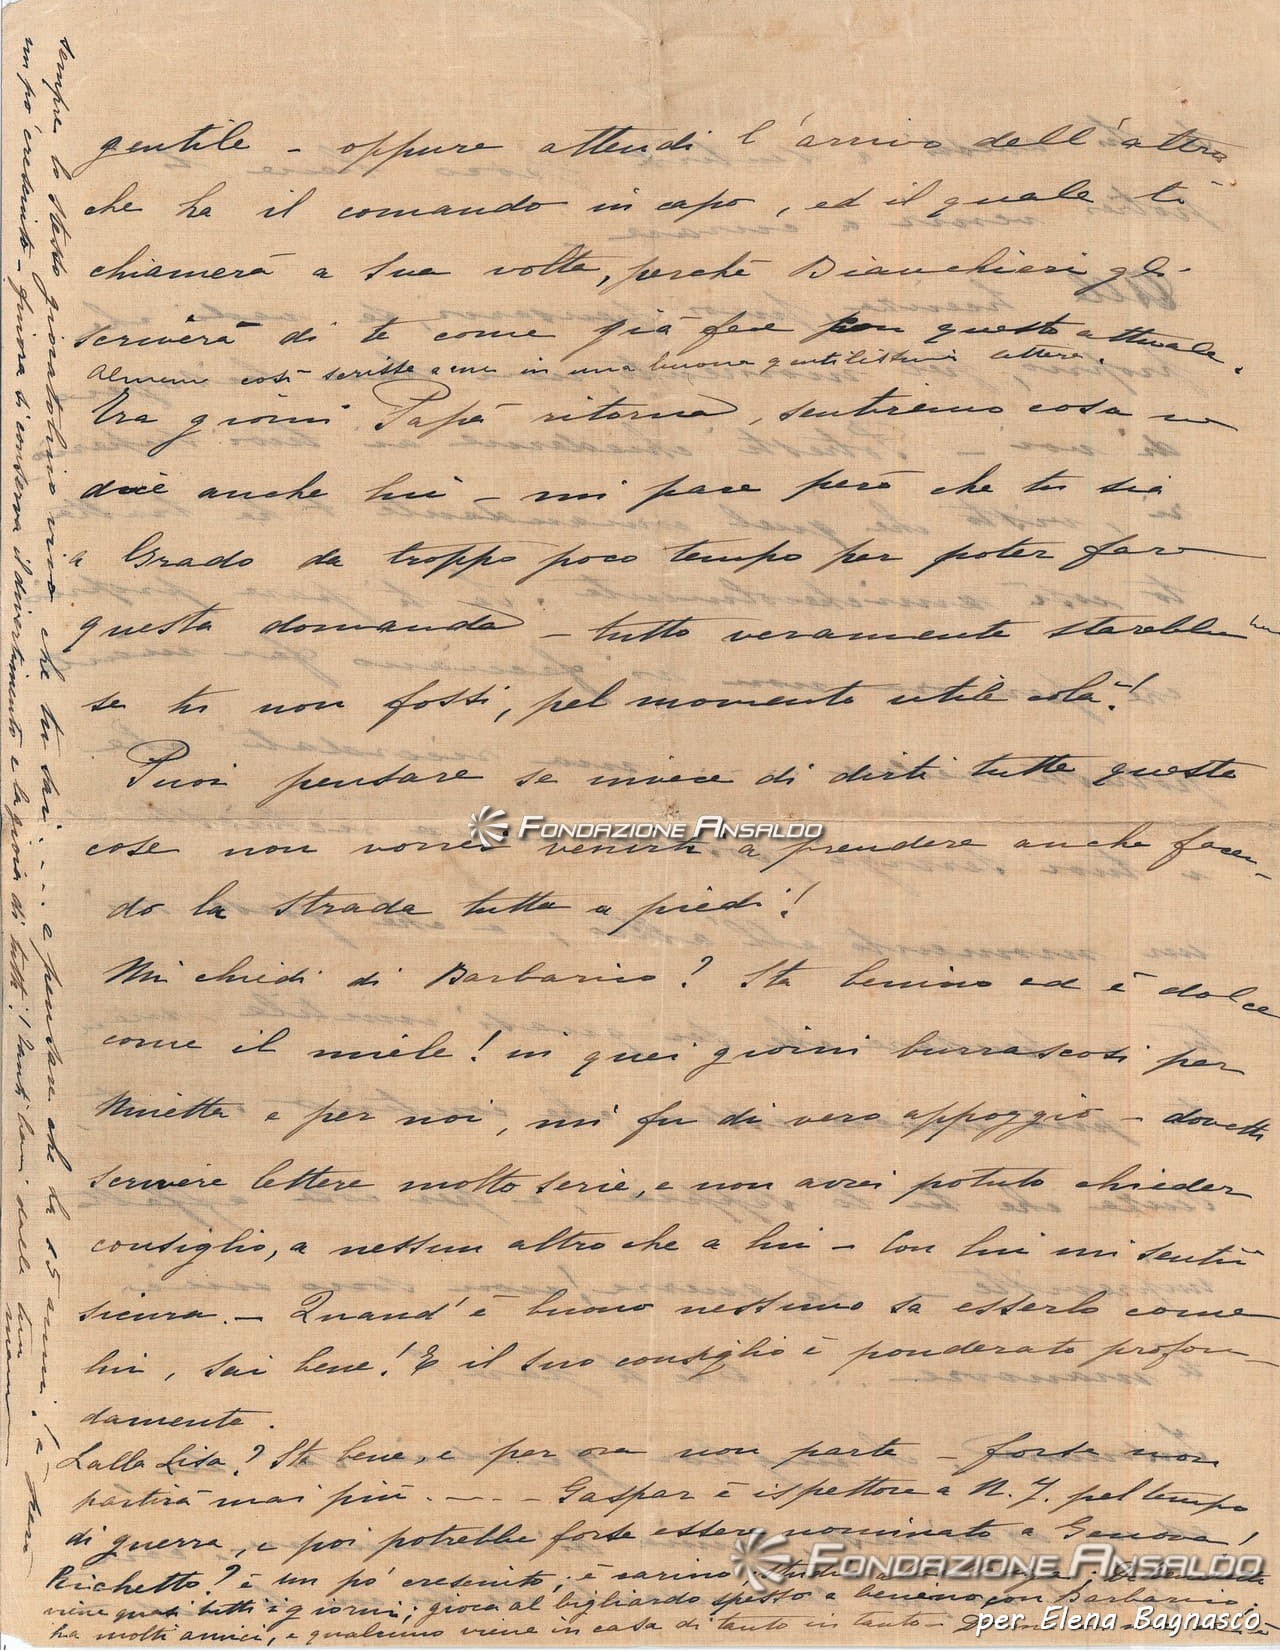 gentile - oppure attendi l'arrivo dell'altro
che ha il comando in capo, ed il quale ti
chiamerà a sua volta, perchè Biancheri gli
scriverà di te come già fece questo attuale.
Almeno così scrisse a me in una buona gentilissima lettera.
Fra giorni Papà ritorna, sentiremo cosa ne
dice anche lui - mi pare però che tu sia
a Grado da troppo poco tempo per poter fare
questa domanda - tutto veramente starebbe
se tu non fossi, pel momento utile colà!
Puoi pensare se invece di dirti tutte queste
cose non vorrei venirti a prendere anche facen-
do la strada tutta a piedi!
Mi chiedi di Barbarino? Sta benino ed è dolce
come il miele! in quei giorni burrascosi per
Ninetta e per noi, mi fu di vero appoggio - dovetti
scrivere lettere molto serie, e non avrei potuto chieder
consiglio, a nessun altro che a lui - Con lui mi sentii
sicura. - Quand'è buono nessuno sa esserlo come
lui, sai bene! E il suo consiglio è ponderato profon-
damente.
Lalla Lisa? Sta bene, e per ora non parte - forse non
partirà mai più. - - - Gaspar è ispettore a N. Y. pel tempo
di guerra, e poi potrebbe forse essere nominato a Genova!
Richetto? è un po' cresciuto, è carino,
viene quasi tutti i giorni; gioca al bigliardo spesso e benino con Barbarino,
ha molti amici, e qualcuno viene in casa di tanto in tanto -
sempre lo stesso giovatolino vivo che tu sai ... e pensare che ha 15 anni!
un po' cresciuto - finora si conserva il divertimento e la gioia di tutti! Tanti baci dalla tua
mam
FONDAZIONE ANSALDO
FONDAZIONE ANSALDO
per Elena Bagnasco